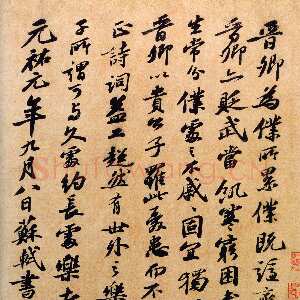 晉卿為僕所累僕既謫
晉卿亦貶武當飢寒窮困
生常分僕處之不戚戚固宜獨
晉卿以貴公子罹此憂患而不
正詩詞益工超然有世外之樂
子所謂可與久處約長處樂者
元祐元年九月八日蘇軾書